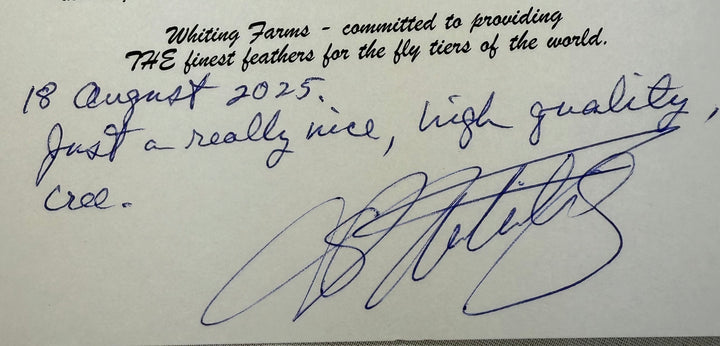 Whiting Farms - committed to providing
THE finest feathers for the fly tiers of the world.
18 August 2025.
Just a really nice, high quality,
cree.